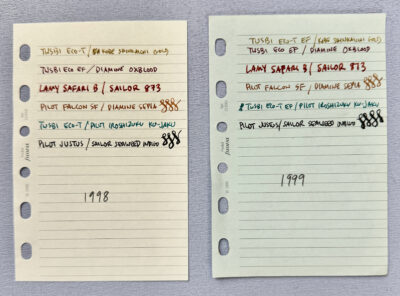 TUSBI ECO-T EF / KOBE GOLD
TUSBI ECO EF / DIAMINE OXBLOOD
LAMY SAFARI B / SAILOR 873
PILOT FALCON SF / DIAMINE SEPIA
TUSBI ECO-T / PILOT IROSHIZUKU KU-JAKU
PILOT JUSTUS / SAILOR SEAWEED INDIGO
1998
TUSBI ECO-T EF / KOBE GOLD
TUSBI ECO EF / DIAMINE OXBLOOD
LAMY SAFARI B / SAILOR 873
PILOT FALCON SF / DIAMINE SEPIA
TUSBI ECO-T EF / PILOT IROSHIZUKU KU-JAKU
PILOT JUSTUS / SAILOR SEAWEED INDIGO
1999